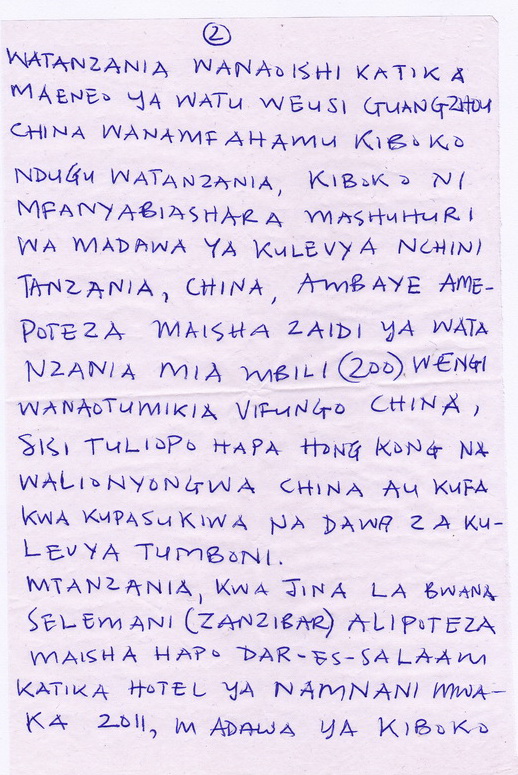 2
WATANZANIA WANAOISHI KATIKA
MAENEO YA WATU WEUSI GUANGZHOU
CHINA WANAMFAHAMU KIBOKO
NDUGU WATANZANIA, KIBOKO NI
MFANYABIASHARA MASHUHURI
WA MADAWA YA KULEVYA NCHINI
TANZANIA, CHINA, AMBAYE AME-
POTEZA MAISHA ZAIDI YA WATA
NZANIA MIA MBILI (200). WENGI
WANAOTUMIKIA VIFUNGO CHINA,
SISI TULIOPO HAPA HONG KONG NA
WALIONYONGWA CHINA AU KUFA
KWA KUPASUKIWA NA DAWA ZA KU-
LEVYA TUMBONI.
MTANZANIA, KWA JINA LA BWANA
SELEMANI (ZANZIBAR) ALIPOTEZA
MAISHA HAPO DAR-ES-SALAAM
KATIKA HOTEL YA NAMNANI MWA-
KA 2011, MADAWA YA KIBOKO